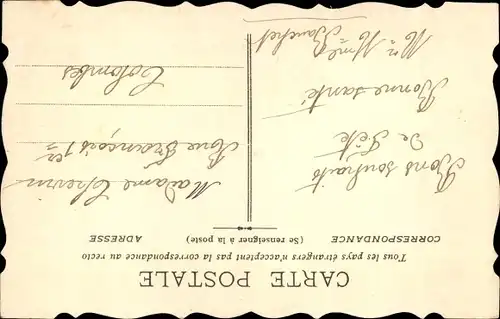 CARTE POSTALE
Tous les pays étrangers n'acceptent pas la correspondance au recto
(Se renseigner à la poste)
CORRESPONDANCE
ADRESSE
Bons souhaits
De Fête
Bonne santé
Mr Mme
Bauchet
Madame
Rue François 1er
Colombes